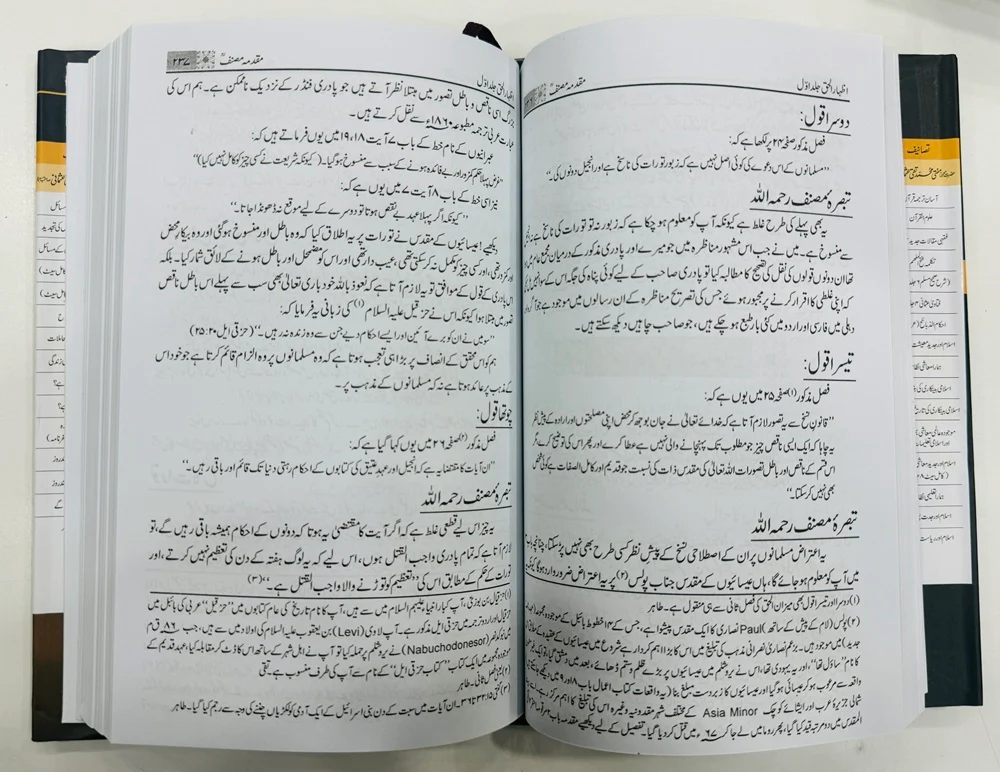 اظہار الحق جلد اوّل
مقدمہ مصنفؒ
دوسرا قول:
فصل مذکور صفحہ ۲۴ پر لکھا ہے کہ:
’’مسلمانوں کے اس دعوے کی کوئی اصل نہیں ہے کہ زبور تورات کی ناسخ ہے اور انجیل دونوں کی۔‘‘
تبصرۂ مصنف رحمہ اللہ
یہ بھی پہلے کی طرح غلط ہے کیونکہ آپ کو معلوم ہو چکا ہے کہ زبور نہ تو تورات کی ناسخ ہے نہ انجیل
سے منسوخ ہے۔ میں نے جب اس مشہور مناظرہ میں جو میرے اور پادری مذکور کے درمیان مجمع عام میں
تھا ان دونوں قولوں کی نقل کی تصحیح کا مطالبہ کیا تو پادری صاحب کے لیے کوئی پناہ کی جگہ اس کے سوا
کہ اپنی غلطی کا اقرار کرنے پر مجبور ہوئے جس کی تصریح مناظرہ کے ان رسالوں میں موجود ہے جو آگرہ
دہلی میں فارسی اور اردو میں کئی بار طبع ہو چکے ہیں، جو صاحب چاہیں دیکھ سکتے ہیں۔
تیسرا قول:
فصل مذکور (۱) صفحہ ۲۵ میں یوں ہے کہ:
’’قانونِ نسخ سے یہ تصور لازم آتا ہے کہ خدائے تعالیٰ نے جان بوجھ کر محض اپنی مصلحتوں اور ارادہ کے پیش نظر
یہ چاہا کہ ایک ایسی ناقص چیز جو مطلوب تک پہنچانے والی نہیں ہے عطا کرے اور پھر اس کی توضیح کرے مگر
اس قسم کے ناقص اور باطل تصورات اللہ تعالیٰ کی مقدس ذات کی نسبت جو قدیم اور کامل الصفات ہے کوئی شخص
بھی نہیں کر سکتا۔‘‘
تبصرۂ مصنف رحمہ اللہ
یہ اعتراض مسلمانوں پر ان کے اصطلاحی نسخ کے پیش نظر کسی طرح بھی نہیں پڑ سکتا، چنانچہ باب
میں آپ کو معلوم ہو جائے گا، ہاں عیسائیوں کے مقدس جناب پولس (۲) پر یہ اعتراض ضرور وارد ہو گا کیونکہ
(۱) دوسرا اور تیسرا قول بھی میزان الحق کی فصل ثانی سے ہی منقول ہے۔ طاہر
(۲) پولس (لام کے پیش کے ساتھ) Paul نصاریٰ کا ایک مقدس پیشوا ہے، جس کے ۱۴ خطوط بائبل کے موجودہ مجموعہ
جدید) میں موجود ہیں۔ بزعم نصاریٰ نصرانی مذہب کی تبلیغ میں اس کا بڑا اہم کردار ہے شروع میں عیسائیوں کے
کا نام ’’ساؤل تھا‘‘، اور یہ یہودی تھا، اس نے یروشلم میں عیسائیوں پر بڑے ظلم و ستم ڈھائے، بعد میں دمشق
واقعہ سے مرعوب ہو کر عیسائی ہو گیا اور عیسائیوں کا زبردست مبلغ بنا (یہ واقعات کتاب اعمال باب ۸ اور ۹ میں دیکھے
شمالی جزیرۂ عرب اور ایشائے کوچک Asia Minor کے مختلف شہر مقدونیہ وغیرہ اس کی تبلیغ کا اہم مرکز رہے
المقدس میں دو مرتبہ قید کیا گیا، پھر روما میں لے جا کر ۶۷ء میں قتل کر دیا گیا۔ تفصیل کے لیے دیکھیے مقدمہ
اظہار الحق جلد اوّل
مقدمہ مصنفؒ
۲۳۷
بزرگ اسی ناقص و باطل تصور میں مبتلا نظر آتے ہیں جو پادری فنڈر کے نزدیک ناممکن ہے۔ ہم اس کی
عبارت عربی ترجمہ مطبوعہ ۱۸۶۰ء سے نقل کرتے ہیں۔
عبرانیوں کے نام خط کے باب ۷ آیت ۱۸، ۱۹ میں یوں فرماتے ہیں کہ:
’’غرض پہلا حکم کمزور اور بے فائدہ ہونے کے سبب سے منسوخ ہو گیا۔ (کیونکہ شریعت نے کسی چیز کو کامل نہیں کیا)‘‘
نیز اسی خط کے باب ۸ آیت ۷ میں یوں ہے کہ:
’’کیونکہ اگر پہلا عہد بے نقص ہوتا تو دوسرے کے لیے موقع نہ ڈھونڈا جاتا۔‘‘
دیکھیے! عیسائیوں کے مقدس نے تورات پر یہ اطلاق کیا کہ وہ باطل اور منسوخ ہو گئی اور وہ بیکار محض
اور کمزور تھی، اور کسی چیز کو مکمل نہ کر سکتی تھی، عیب دار تھی اور اس کو مضمحل اور باطل ہونے کے لائق شمار کیا۔ بلکہ
اس پادری کے قول کے موافق تو یہ لازم آتا ہے کہ نعوذ باللہ خود باری تعالیٰ بھی سب سے پہلے اس باطل ناقص
تصور میں مبتلا ہوا کیونکہ اس نے حزقیل علیہ السلام (۱) کی زبانی یہ فرمایا کہ:
’’سو میں نے ان کو برے آئین اور ایسے احکام دیے جن سے وہ زندہ نہ رہیں۔‘‘ (حزقی ایل ۲۰:۲۵)
ہم کو اس محقق کے انصاف پر بڑا ہی تعجب ہوتا ہے کہ وہ مسلمانوں پر وہ الزام قائم کرتا ہے جو خود اس
کے مذہب پر عائد ہوتا ہے نہ کہ مسلمانوں کے مذہب پر۔
چوتھا قول:
فصل مذکور (۲) صفحہ ۲۶ میں یوں کہا گیا ہے کہ:
’’ان آیات کا مقتضا یہ ہے کہ انجیل اور عہد عتیق کی کتابوں کے احکام رہتی دنیا تک قائم اور باقی رہیں۔‘‘
تبصرۂ مصنف رحمہ اللہ
یہ چیز اس لیے قطعی غلط ہے کہ اگر آیت کا مقتضیٰ یہ ہوتا کہ دونوں کے احکام ہمیشہ باقی رہیں گے، تو
لازم آتا ہے کہ تمام پادری واجب القتل ہوں، اس لیے کہ یہ لوگ ہفتے کے دن کی تعظیم نہیں کرتے، اور
تورات کے حکم کے مطابق اس کی تعظیم کو توڑنے والا واجب القتل ہے۔ (۳)
(۱) حزقیل بن بوزی، آپ کبار انبیاء علیہم السلام میں سے ہیں، آپ کا نام تاریخ کی عام کتابوں میں ’’حزقیل‘‘ عربی کی بائبل میں
حزقیال اور اردو ترجمہ میں حزقی ایل مذکور ہے۔ آپ لاوی (Levi) بن یعقوب علیہ السلام کی اولاد میں سے ہیں، جب ۵۸۶ ق م
میں بنوکدنصر (Nabuchodonosor) نے یروشلم پر حملہ کیا تو آپ نے اہل شہر کے ساتھ اس کا ڈٹ کر مقابلہ کیا، عہد قدیم کے
موجودہ مجموعہ میں ایک کتاب ’’کتاب حزقی ایل‘‘ کے نام سے آپ کی طرف منسوب ہے۔ تقی
(۲) یعنی فصل ثانی۔ طاہر
(۳) گنتی ۱۵: ۳۲ تا ۳۶۔ ان آیات میں سبت کے دن بنی اسرائیل کے ایک آدمی کو لکڑیاں چننے کی وجہ سے رجم کیا گیا۔ طاہر
تصانیف
آسان ترجمہ قرآن
علوم القرآن
فقہی مقالات جدید
احکام الذبائح
ہمارا معاشی نظام
ہمارا تعلیمی نظام
اسلام اور ریاست